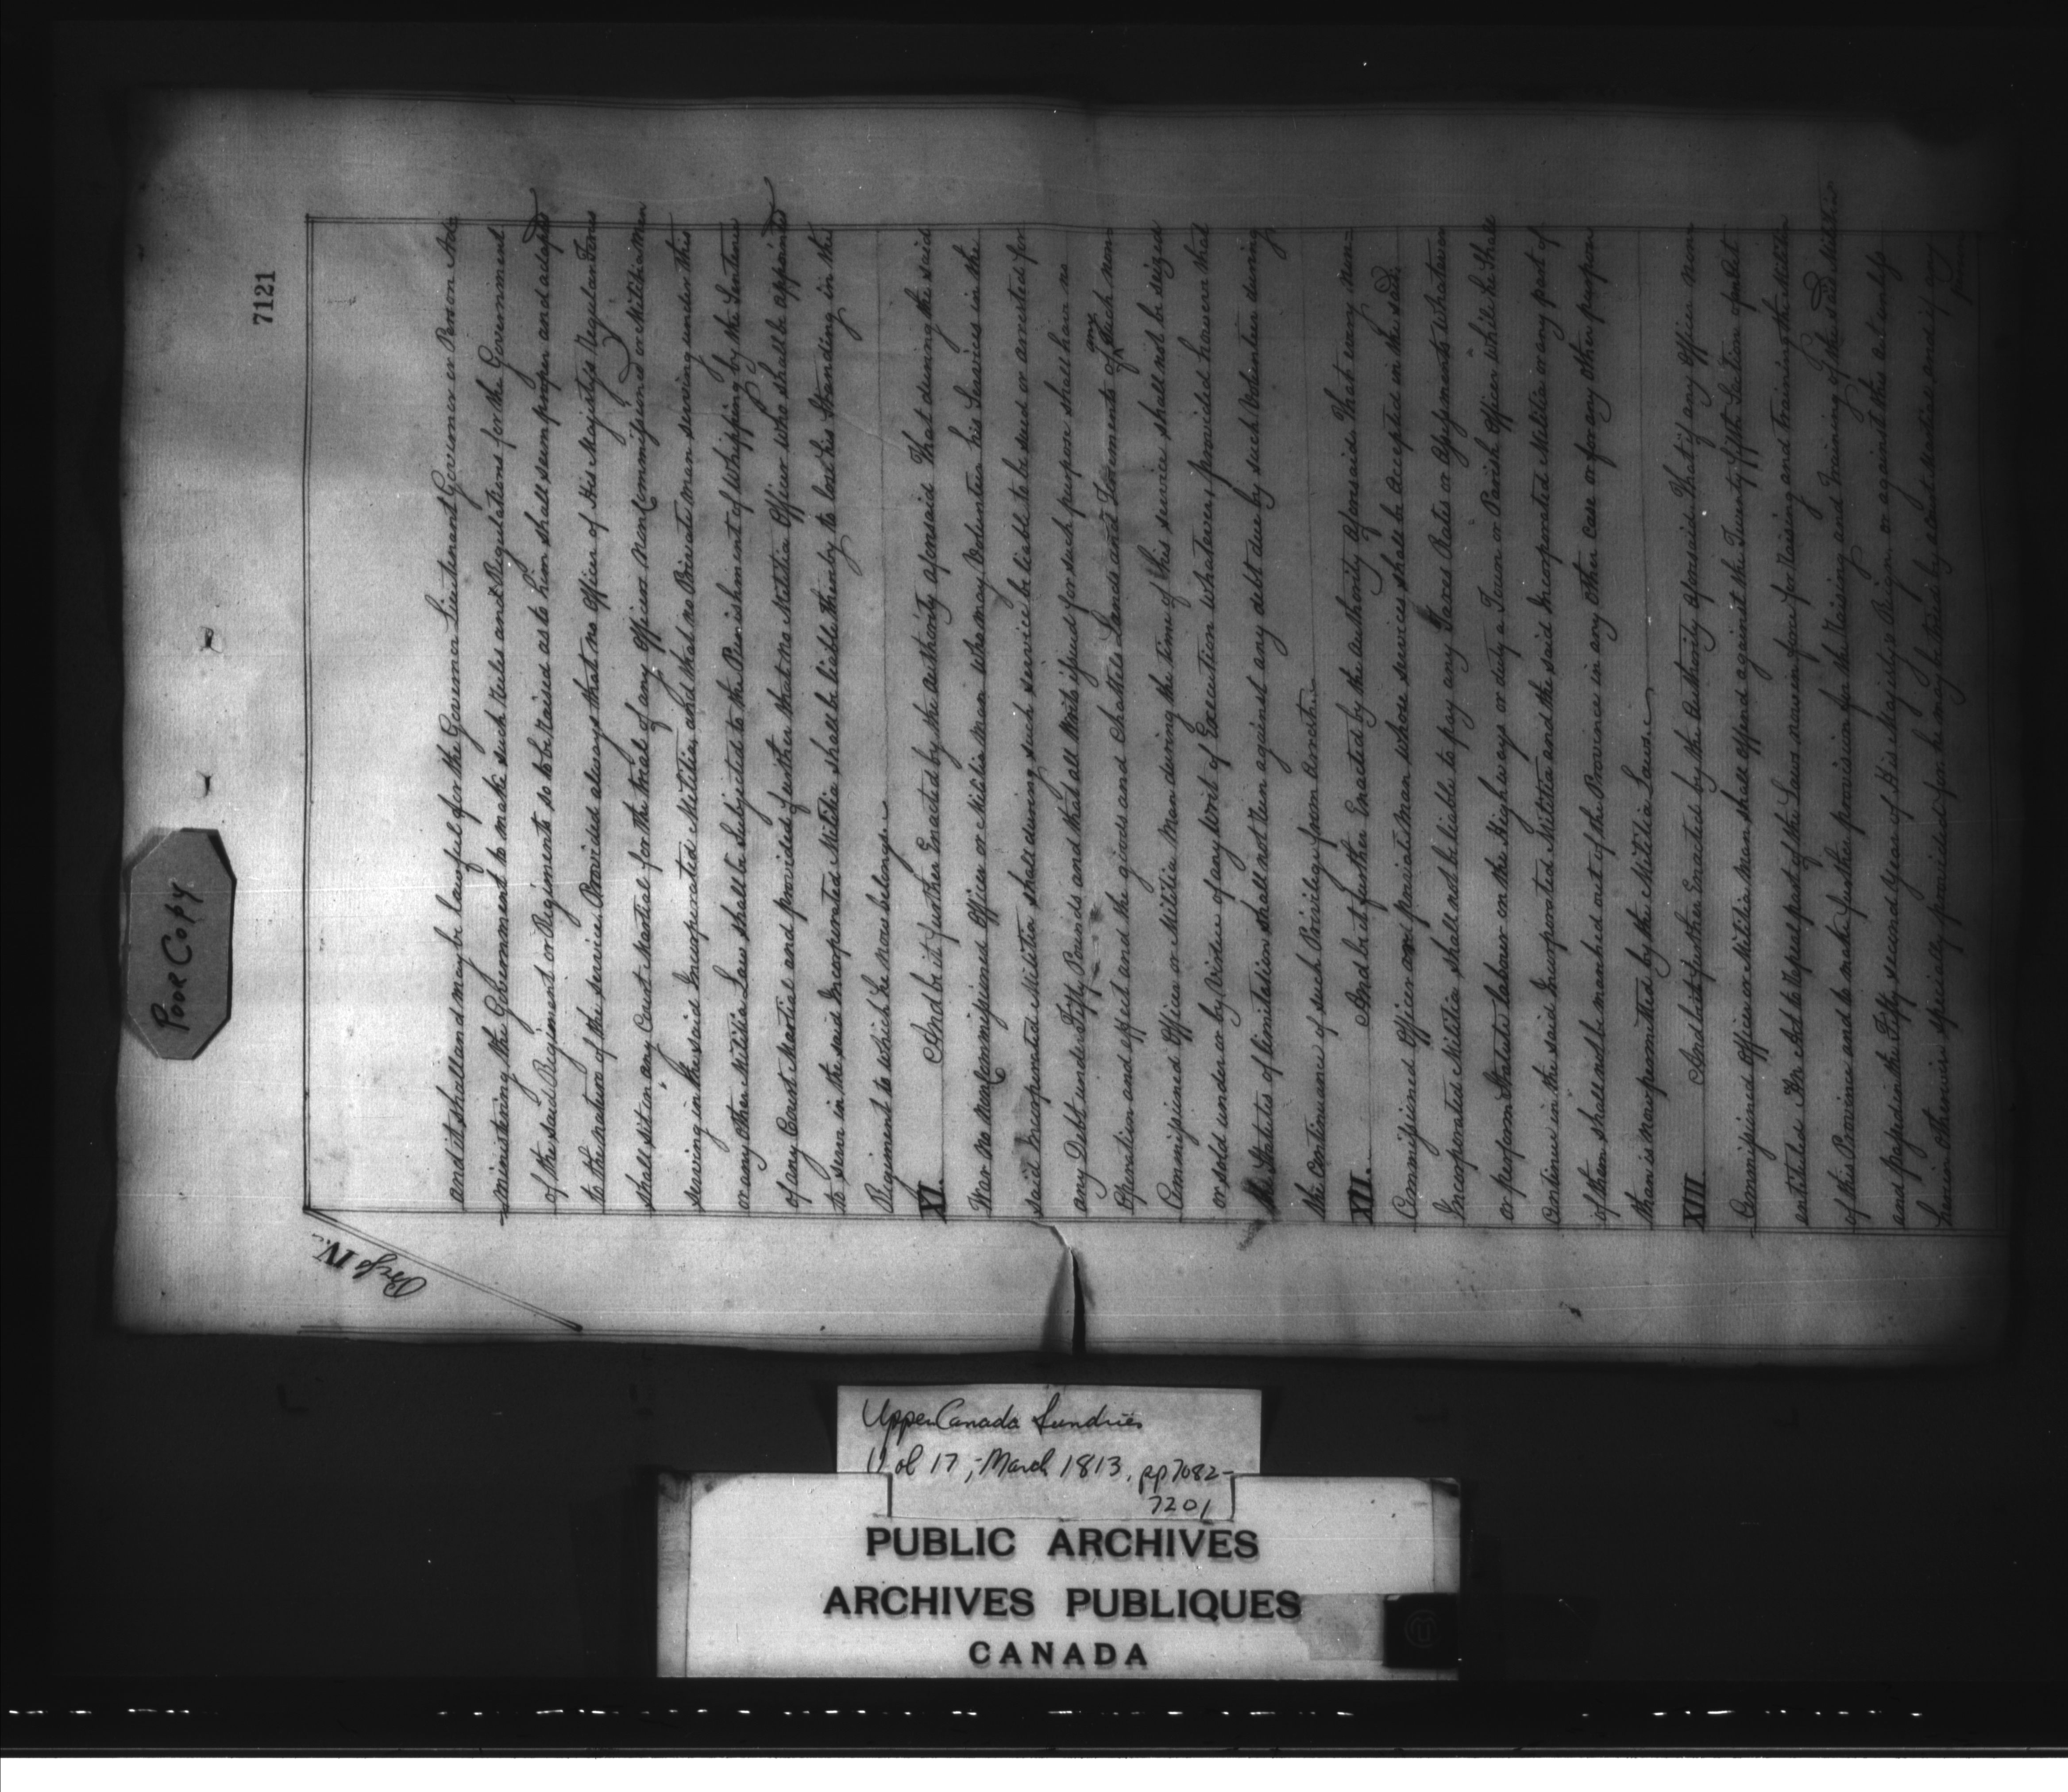 7121
Page IV.
Poor Copy
and it shall and may be lawful for the Governor Lieutenant Governor or Person Ad-
-ministering the Government to make such Rules and Regulations for the Government
of the said Regiment or Regiments so to be raised as to him shall seem proper and adapted
to the nature of the service. Provided always that no Officer of His Majesty's Regular Forces
shall sit on any Court martial for the trial of any Officer Non Commissioned or Militia Man
serving in the said Incorporated Militia, and that no Private man serving under this
or any other Militia Law shall be subjected to the Punishment of Whipping by the Sentence
of any Court Martial and provided further that no Militia Officer who shall be appointed
to serve in the said Incorporated Militia shall be liable thereby to lose his Standing in the
Regiment to which he now belongs.
XI. And be it further Enacted by the authority aforesaid That during the said
War no Non Commissioned Officer or Militia man who may Volunteer his Services in the
said Incorporated Militia shall during such service be liable to be sued or arrested for
any Debt under Fifty Pounds and that all Writs issued for such purpose shall have no
Operation and effect and the goods and Chattels Lands and Tenements of any such Non
Commissioned Officer or Militia Man during the time of his service shall not be seized
or sold under or by Virtue of any Writ of Execution whatever, provided however that
the Statutes of limitation shall not run against any debt due by such Volunteer during
the continuance of such Privilege from Arrest
XII. And be it further Enacted by the authority aforesaid That every Non-
Commissioned Officer or private Man whose services shall be accepted in the said
Incorporated Militia shall not be liable to pay any Taxes Rates or Assessments whatever
or perform Statute labour on the Highways or duty a Town or Parish Officer while he shall
continue in the said Incorporated Militia and the said Incorporated Militia or any part of
of them shall not be marched out of the Province in any other case or for any other purpose
than is now permitted by the Militia Laws.
XIII. And be it further Enacted by the Authority aforesaid That if any Officer Non
Commissioned Officer or Militia Man shall offend against the Twenty fifth Section of an Act
entitled An Act to repeal part of the Laws now in force for Raising and Training the Militia
of this Province and to make further provision for the Raising and Training of the said Militia
and passed in the Fifty second year of His Majesty's Reign or against this Act unless
herein otherwise specially provided for he may be tried by a Court martial and if any
Upper Canada Sundries
Vol 17, - March 1813, pp 7082-
7201
PUBLIC ARCHIVES
ARCHIVES PUBLIQUES
CANADA